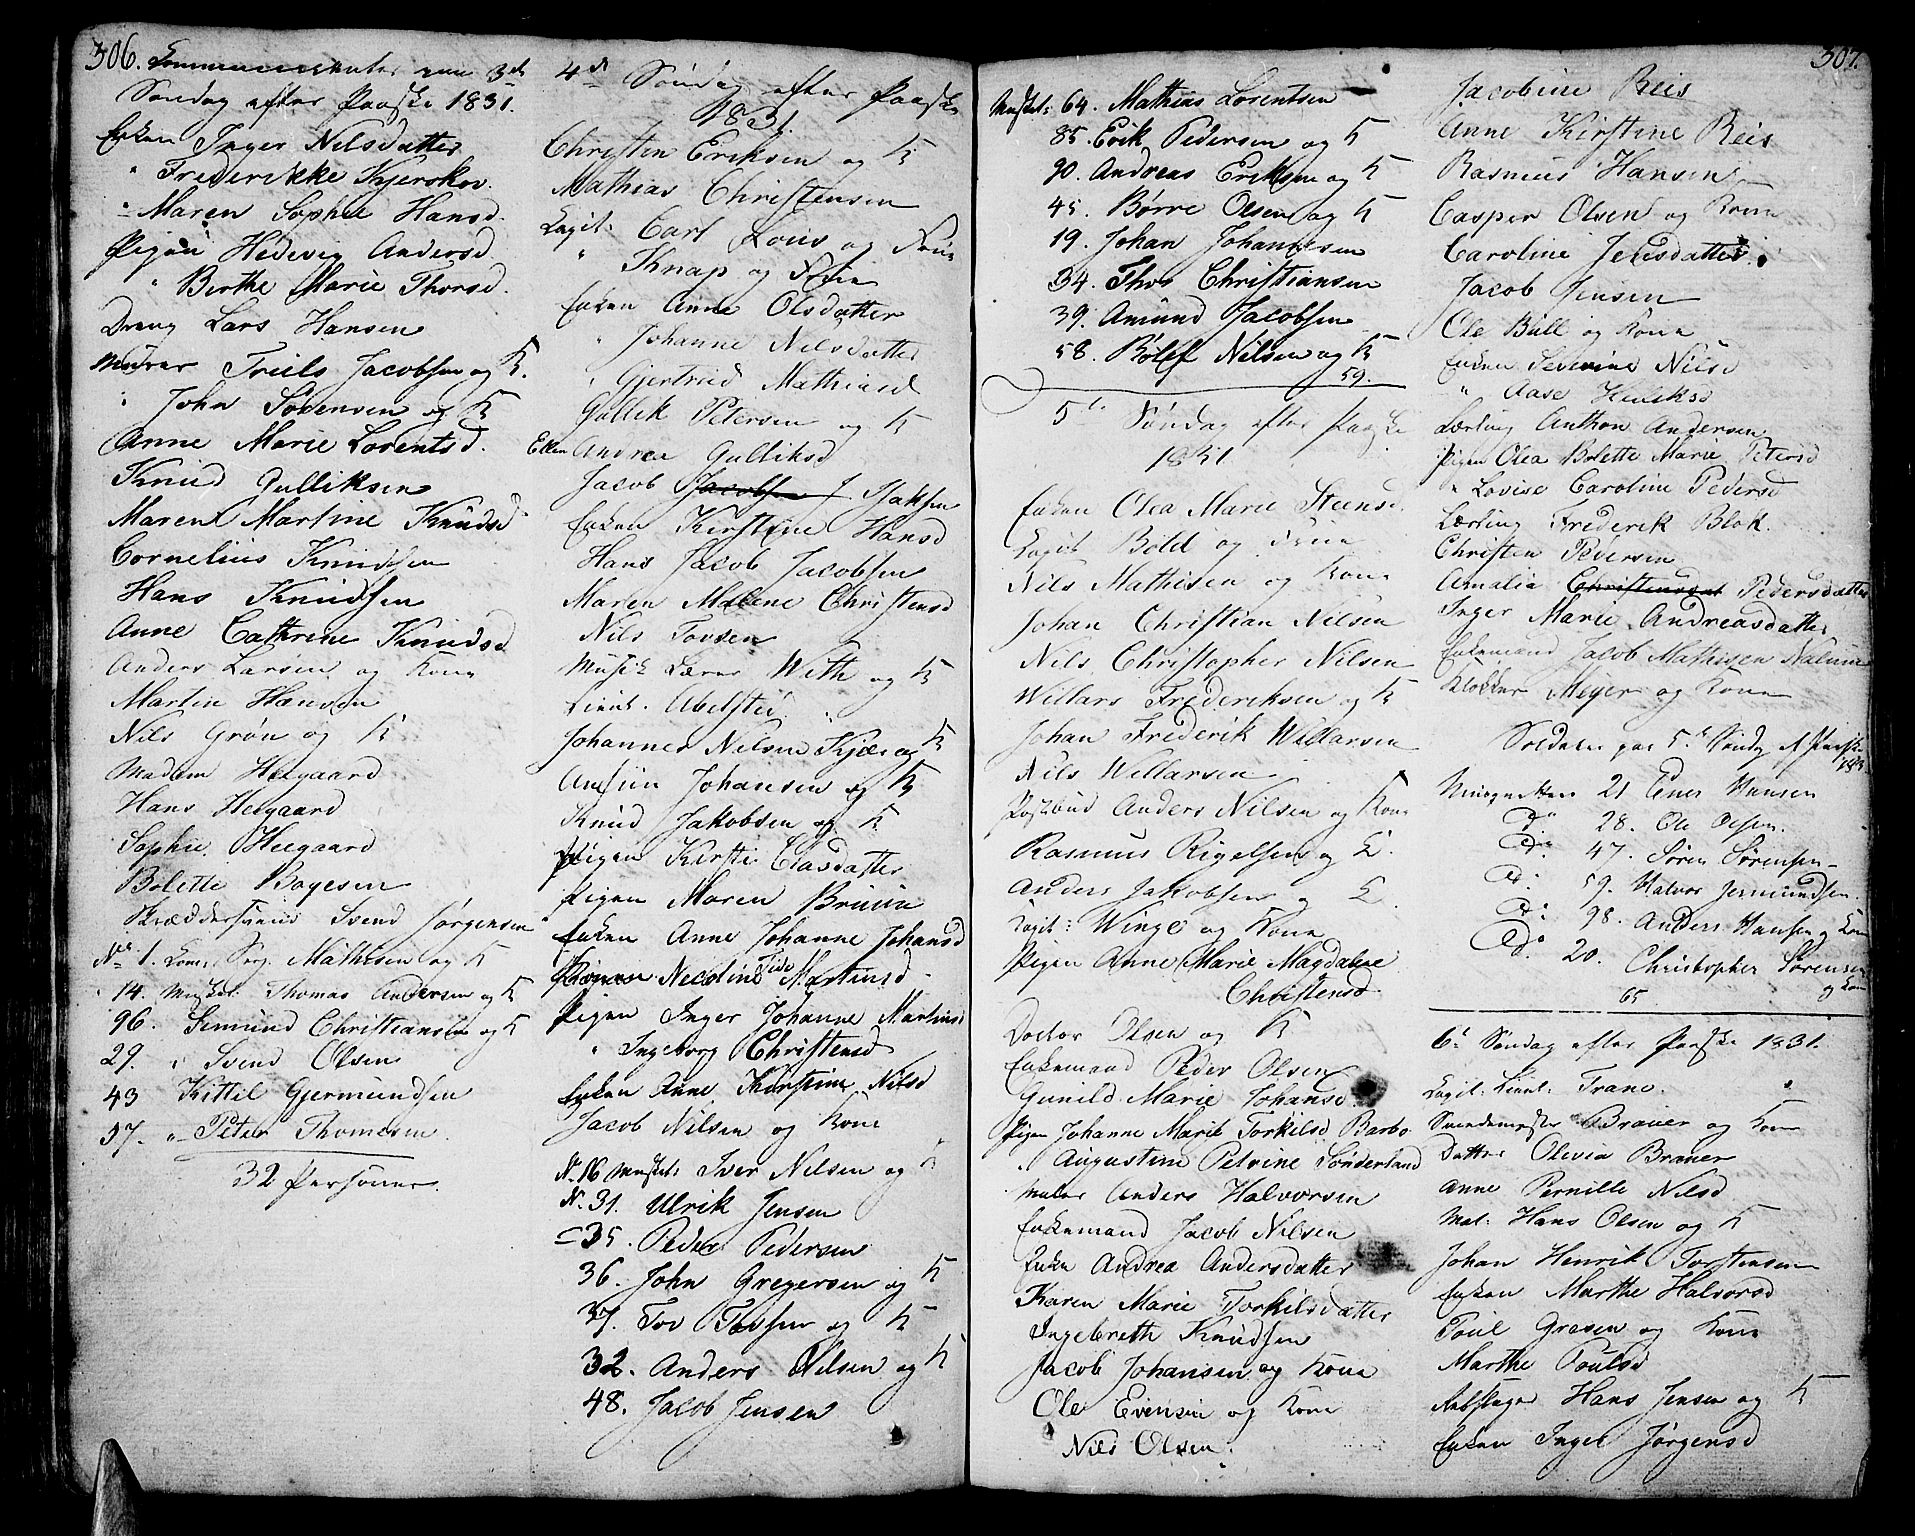 306. Communicanter paa 3de
Søndag efter Paaske 1831.
Enken Inger Nilsdatter
" Frederikke Kjerskov.
" Maren Sophie Hansd.
Pigen Hedevig Andersd
" Birthe Marie Thorsd.
Dreng Lars Hansen
Murer Truls Jacobsen og K.
" John Sørensen og K
Anne Marie Lorentsd.
Knud Gulliksen
Maren Martine Knudsd
Cornelius Knudsen
Hans Knudsen
Anne Cathrine Knudsd
Anders Larsen og Kone
Martin Hansen
Nils Grøn og K
Madam Heegaard
Hans Heegaard
Sophie Heegaard
Bolette Bagesen
Skræddersvend Svend Jørgensen
No. 1. Com. Serg. Mathisen og K
14. Musket. Thomas Andersen og K
96. Semund Christiansen og K
29. " Svend Olsen
43 Kittil Gjermundsen
57. " Peter Thomesen.
32 Personer.
4de Søndag efter Paaske
1831.
Christen Eriksen og K
Mathias Christensen
Capit: Carl Lous og Frue
" Knap og Frue
Enken Anne Olsdatter
" Johanne Nilsdatter
" Gjertrud Mathiasd
Gullik Petersen og K
Enken Andrea Gulliksd
Jacob Jacobsen Isaksen
Enken Kirstine Hansd
Hans Jacob Jacobsen
Maren Malene Christensd
Nils Tovsen
Musik Lærer With og K
Lieut. Abelsted
Johannes Nilsen Kjær og K
Amsiin Johansen og K
Knud Jakobsen og K
Pigen Kirsti Clasdatter
Pigen Maren Bruun
Enken Anne Johanne Johansd
Nicoline Martinsd
Pigen Inger Johanne Martinsd
" Ingeborg Christensd
Enken Anne Kirstine Nilsd
Jacob Nilsen og Kone
No 16 Musket: Iver Nilsen og K
No. 31. Ulrik Jensen
35. Peder Pedersen
36. John Gregersen og K
37. Tov Tovsen og K
32. Anders Nilsen og K
48. Jacob Jensen
307.
Musket: 64. Mathias Lorentsen
85. Erik Pedersen og K
90. Andreas Eriksen og K
45. Børre Olsen og K
19. Johan Johannesen
34. Thos Christiansen
39. Amund Jacobsen
58. Rolf Nilsen og K
59.
5te Søndag efter Paaske
1831
Enken Olea Marie Steensd
Capit Bold og Frue
Nils Mathisen og Kone
Johan Christian Nilsen
Nils Christopher Nilsen
Willars Frederiksen og K
Johan Frederik Willarsen
Nils Willarsen
Postbud Anders Nilsen og Kone
Rasmus Rigelsen og K.
Anders Jakobsen og K.
Capit: Winge og Kone
Pigen Anne Marie Magdalene
Christensd
Doctor Olsen og K
Enkemand Peder Olsen
Gunild Marie Johansd
Pigen Johanne Marie Torkilsd Barbo
" Augustine Petrine Sønderland
Maler Anders Halvorsen
Enkemand Jacob Nilsen
Enke Andrea Andersdatter
Karen Marie Torkilsdatter
Ingebreth Knudsen
Jacob Johansen og Kone
Ole Evensen og Kone
Nils Olsen.
Jacobine Reis
Anne Kirstine Reis
Rasmus Hansen
Casper Olsen og Kone
Caroline Jensdatter
Jacob Jensen
Ole Bull og Kone
Enken Severine Nilsd
" Aase Henriksd
Lærling Anthon Andersen
Pigen Olea Bolette Marie Petersd
" Lovise Caroline Pedersd
Lærling Frederik Blok.
Christen Pedersen
Amalia Christensdat Pedersdatter
Inger Marie Andreasdatter
Enkemand Jacob Mathisen
Klokker Meyer og Kone
Soldater paa 5te Søndg ef Paaske
Musquetteer 21 Einer Hansen
Do 28. Ole Olsen.
Do 47. Søren Sørensen
Do 59. Halvor Jermundsen
Do 98. Anders Hansen og Kone
Do 20. Christopher Sørensen
og Kone
65
6te Søndag efter Paaske 1831.
Capit: Lieut: Trane.
Brauer og Kone
Datter Olivia Brauer
Anne Pernille Nilsd
Mat: Hans Olsen og K
Johan Henrik Torstensen
Enken Marthe Halvorsd
Poul Gresen og Kone
Marthe Poulsd
Hans Jensen og K
Enken Inger Jørgensd